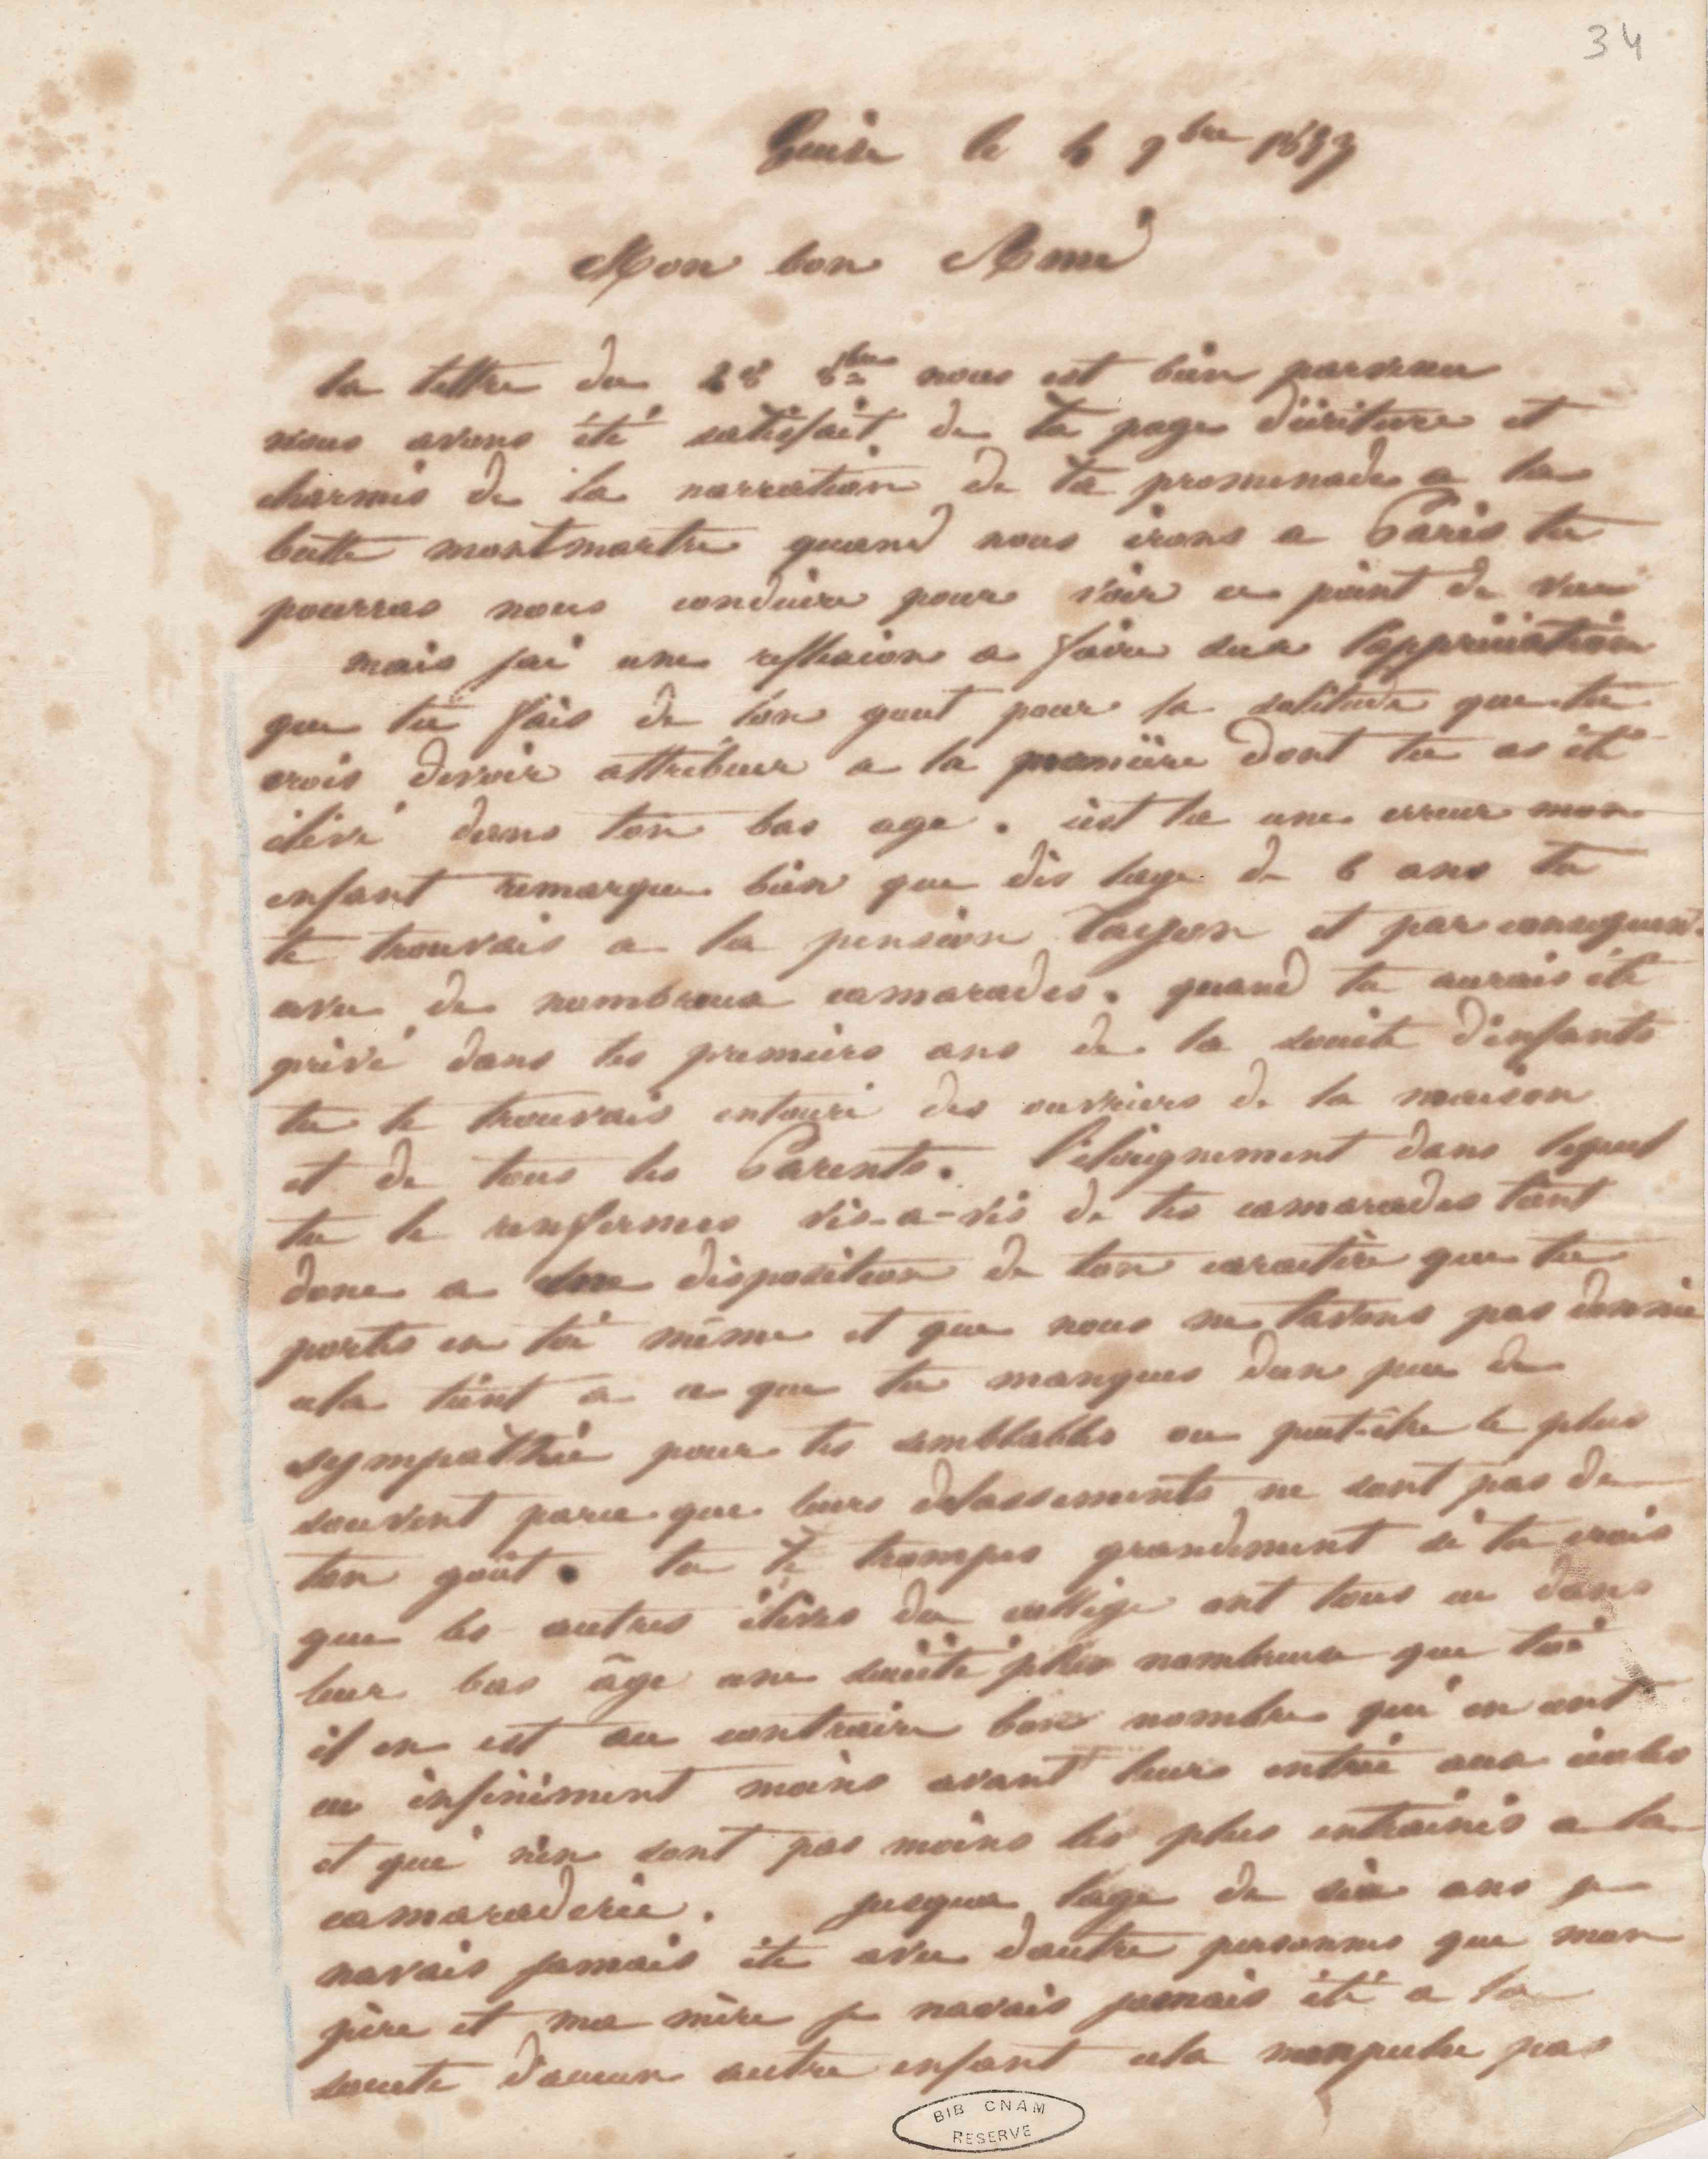 34
Guise le 4 9bre 1853
Mon bon Aimé
ta lettre du 28 8bre nous est bien parvenu
nous avons été satisfait de ta page d'écriture et
charmés de la narration de ta promenade a la
butte montmartre quand nous irons a Paris tu
pourras nous conduire pour voir ce point de vue
mais jai une reflexion a faire sur l'appréciation
que tu fais de ton gout pour la solitude que tu
crois devoir attribuer a la manière dont tu as été
élévé dans ton bas age. cest la une erreur mon
enfant remarque bien que dès lage de 6 ans tu
te trouvais a la pension et par consequent
avec de nombreux camarades. quand tu aurais été
privé dans tes premiers ans de la société d'enfants
tu te trouvais entouré des ouvriers de la maison
et de tous tes Parents. l'éloignement dans lequel
tu te renfermes vis-a-vis de tes camarades tient
donc a une disposition de ton caractère que tu
portes en toi même et que nous ne tavons pas donnée
cela tient a ce que tu manques dun peu de
sympathie pour tes semblables ou peut-être le plus
souvent parce que leurs délassements ne sont pas de
ton goût. tu te trompes grandement si tu crois
que les autres élèves du collège ont tous eu dans
leur bas âge une société plus nombreuse que toi
il en est au contraire bon nombre qui en ont
eu infiniment moins avant leurs entrée aux écoles
et qui n'en sont pas moins les plus entrainés a la
camaraderie. jusqua lage de six ans je
navais jamais été avec dautre personnes que mon
père et ma mère je navais jamais été a la
societe d'aucun autre enfant cela mempecha pas
BIB CNAM
RESERVE